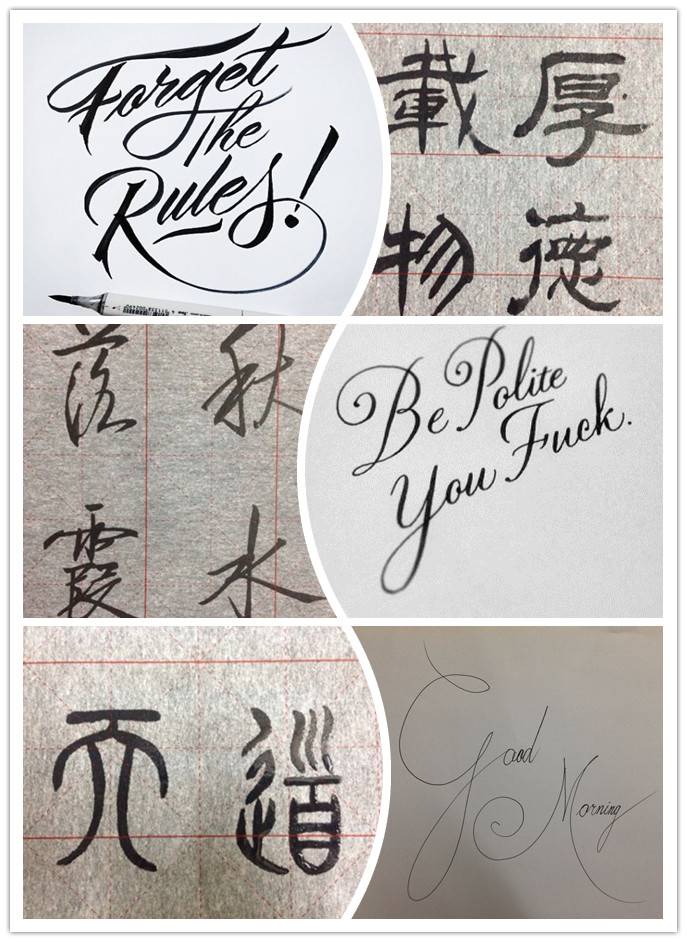 Forget
The
Rules!
厚德
載物
秋水
落霞
Be Polite
You Fuck.
天道
Good
Morning